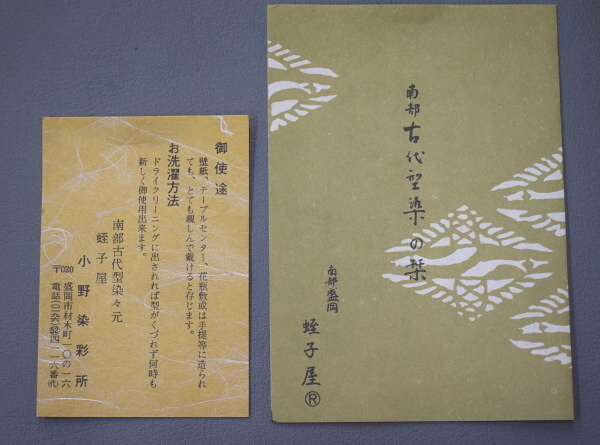 御使途
壁紙、テーブルセンター、花瓶敷或は手提等に造られ
ても、とても親しんで戴けると存じます。
お洗濯方法
ドライクリーニングに出されれば型がくづれず何時も
新しく御使用出来ます。
南部古代型染々元
蛭子屋
小野染彩所
〒020 盛岡市材木町一〇の一六
電話(〇一九六)52四一一六番(代)
南部古代型染の栞
南部盛岡
蛭子屋®